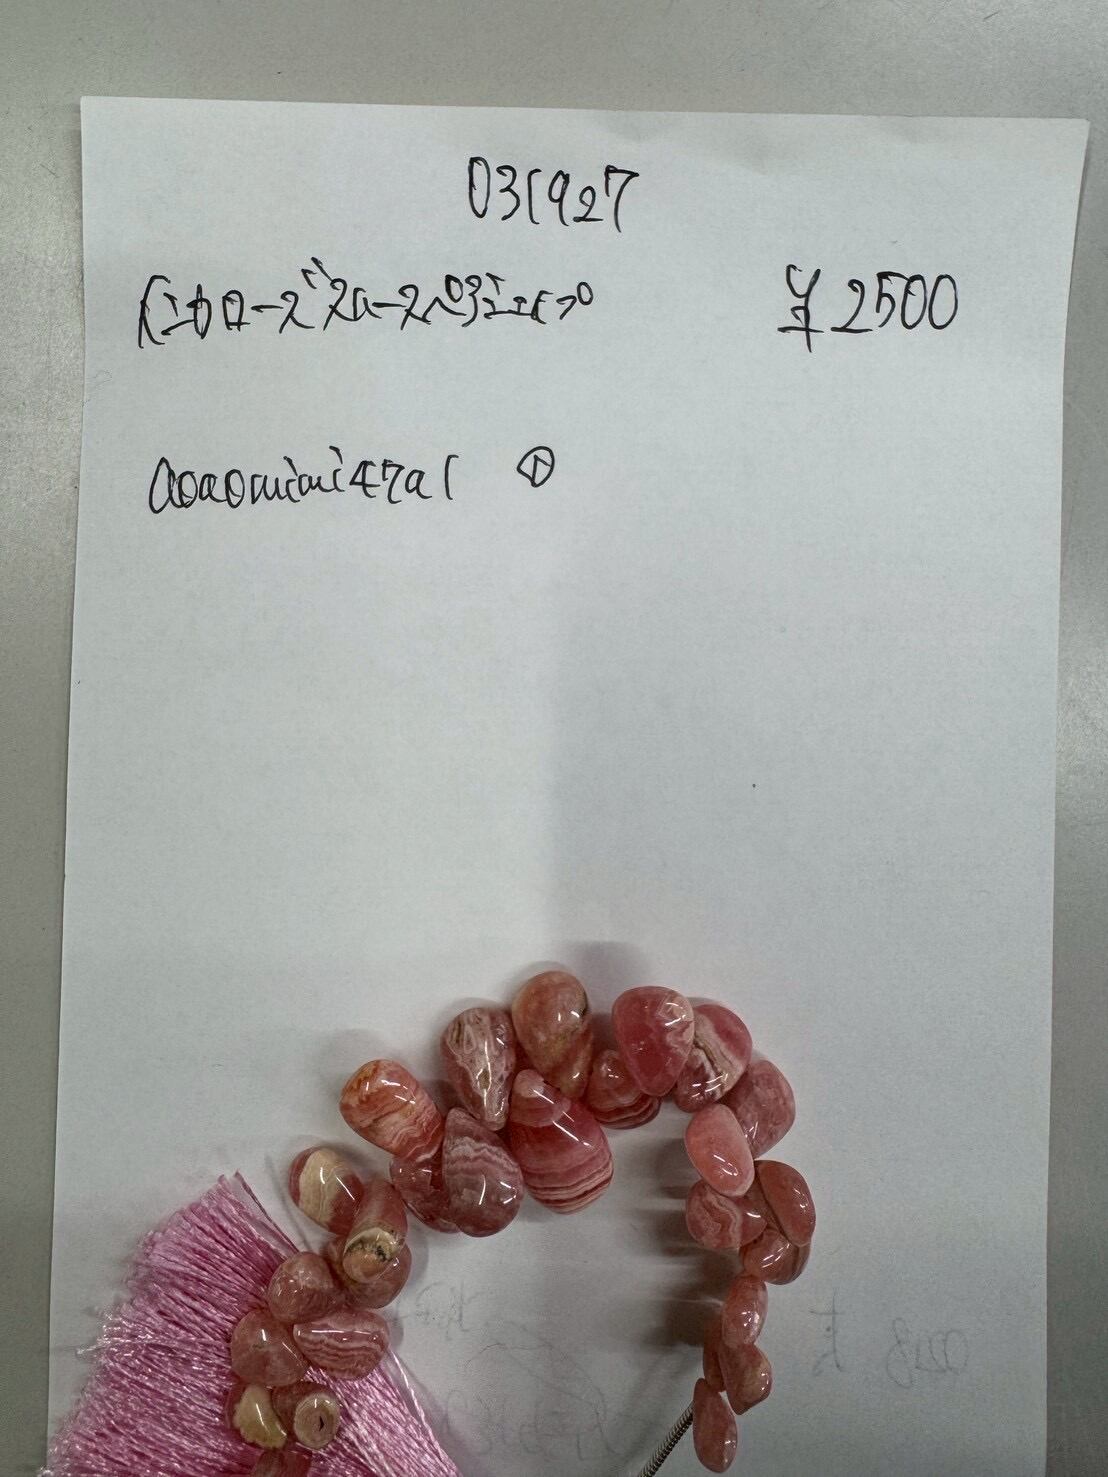 031927
インカローズスムースペアシェイプ ¥2500
aoaomimi47a1 ①